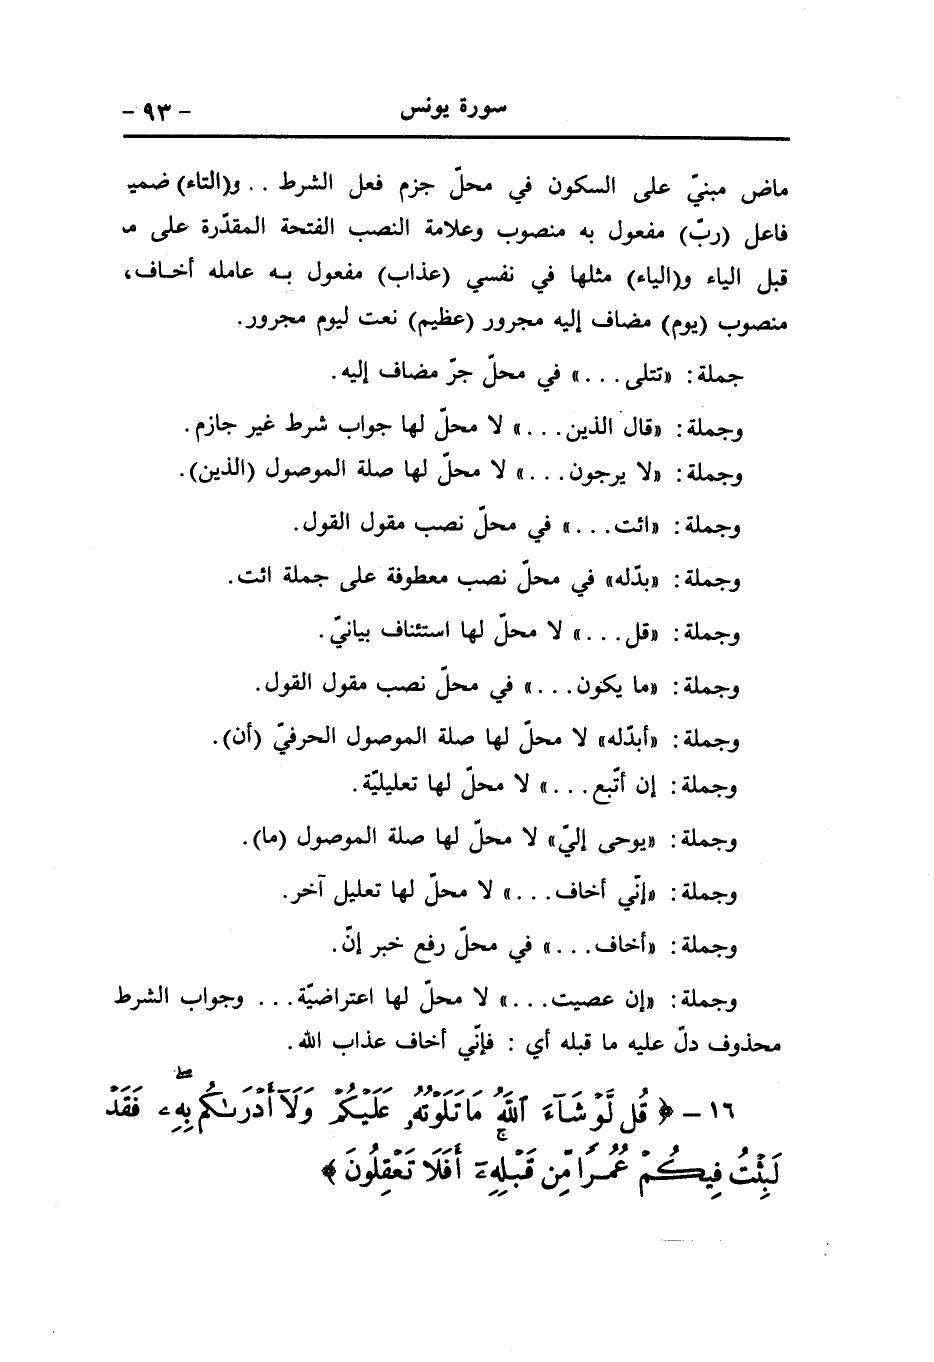 سورة يونس - ٩٣ -
ماض مبنيّ على السكون في محلّ جزم فعل الشرط . . و(التاء) ضميـ
فاعل (ربّ) مفعول به منصوب وعلامة النصب الفتحة المقدّرة على مـ
قبل الياء و(الياء) مثلها في نفسي (عذاب) مفعول به عامله أخاف،
منصوب (يوم) مضاف إليه مجرور (عظيم) نعت ليوم مجرور.
جملة: «تتلى. . .» في محلّ جرّ مضاف إليه.
وجملة: «قال الذين. . .» لا محلّ لها جواب شرط غير جازم.
وجملة: «لا يرجون. . .» لا محلّ لها صلة الموصول (الذين).
وجملة: «ائت. . .» في محلّ نصب مقول القول.
وجملة: «بدّله» في محلّ نصب معطوفة على جملة ائت.
وجملة: «قل. . .» لا محلّ لها استئناف بيانيّ.
وجملة: «ما يكون. . .» في محلّ نصب مقول القول.
وجملة: «أبدّله» لا محلّ لها صلة الموصول الحرفيّ (أن).
وجملة: إن أتّبع. . .» لا محلّ لها تعليليّة.
وجملة: «يوحى إليّ» لا محلّ لها صلة الموصول (ما).
وجملة: «إنّي أخاف. . .» لا محلّ لها تعليل آخر.
وجملة: «أخاف. . .» في محلّ رفع خبر إنّ.
وجملة: «إن عصيت. . .» لا محلّ لها اعتراضيّة. . . وجواب الشرط
محذوف دلّ عليه ما قبله أي : فإنّي أخاف عذاب الله.
١٦ - ﴿ قُل لَّوْ شَآءَ ٱللَّهُ مَا تَلَوْتُهُۥ عَلَيْكُمْ وَلَآ أَدْرَىٰكُم بِهِۦ ۖ فَقَدْ
لَبِثْتُ فِيكُمْ عُمُرًا مِّن قَبْلِهِۦٓ ۚ أَفَلَا تَعْقِلُونَ ﴾